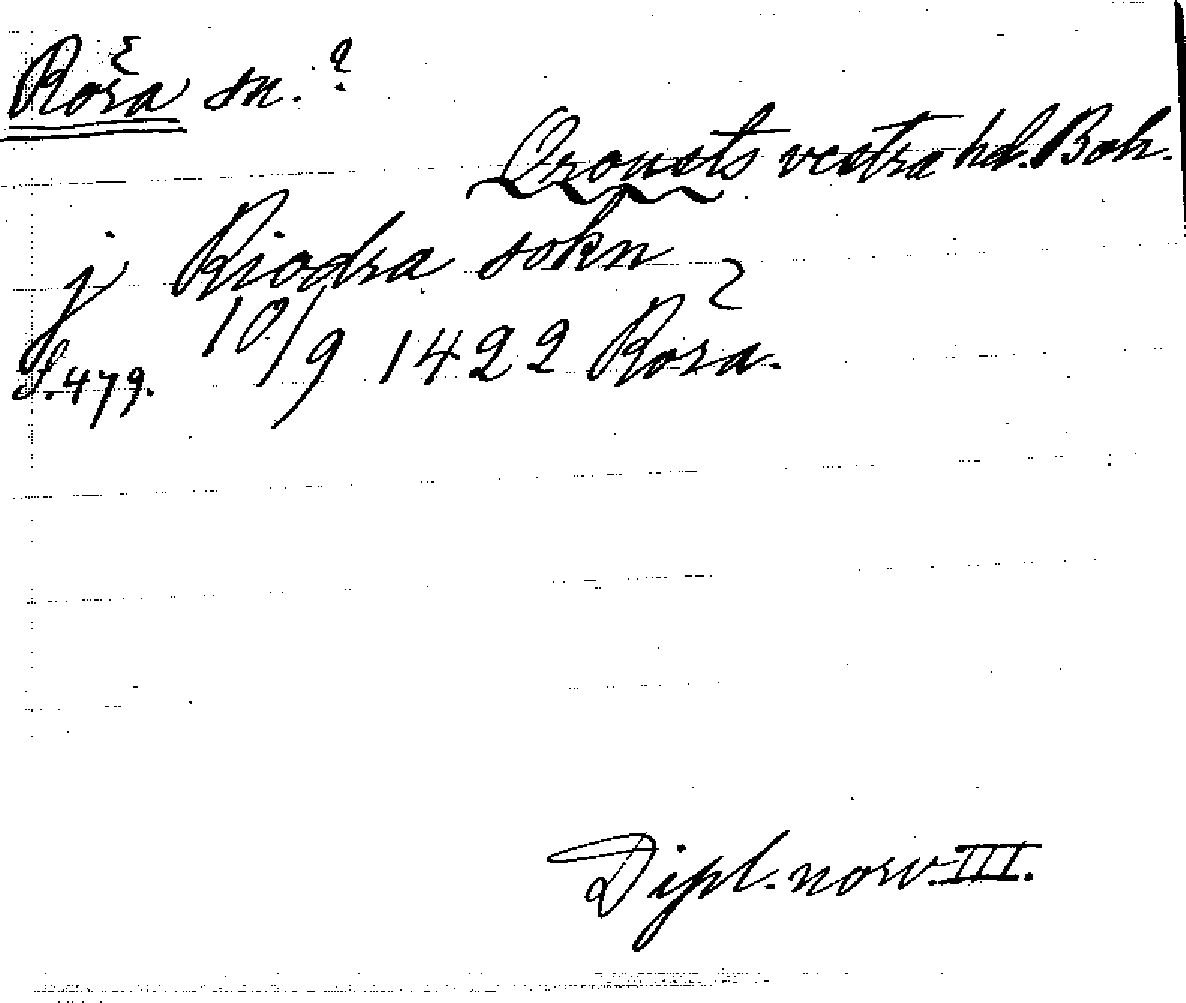 Rosa sn.?
Orousts vestra hd. Boh.
j Riodra sokn
S. 479. 10/9 1422 Rosa.
Dipl. norv. III.